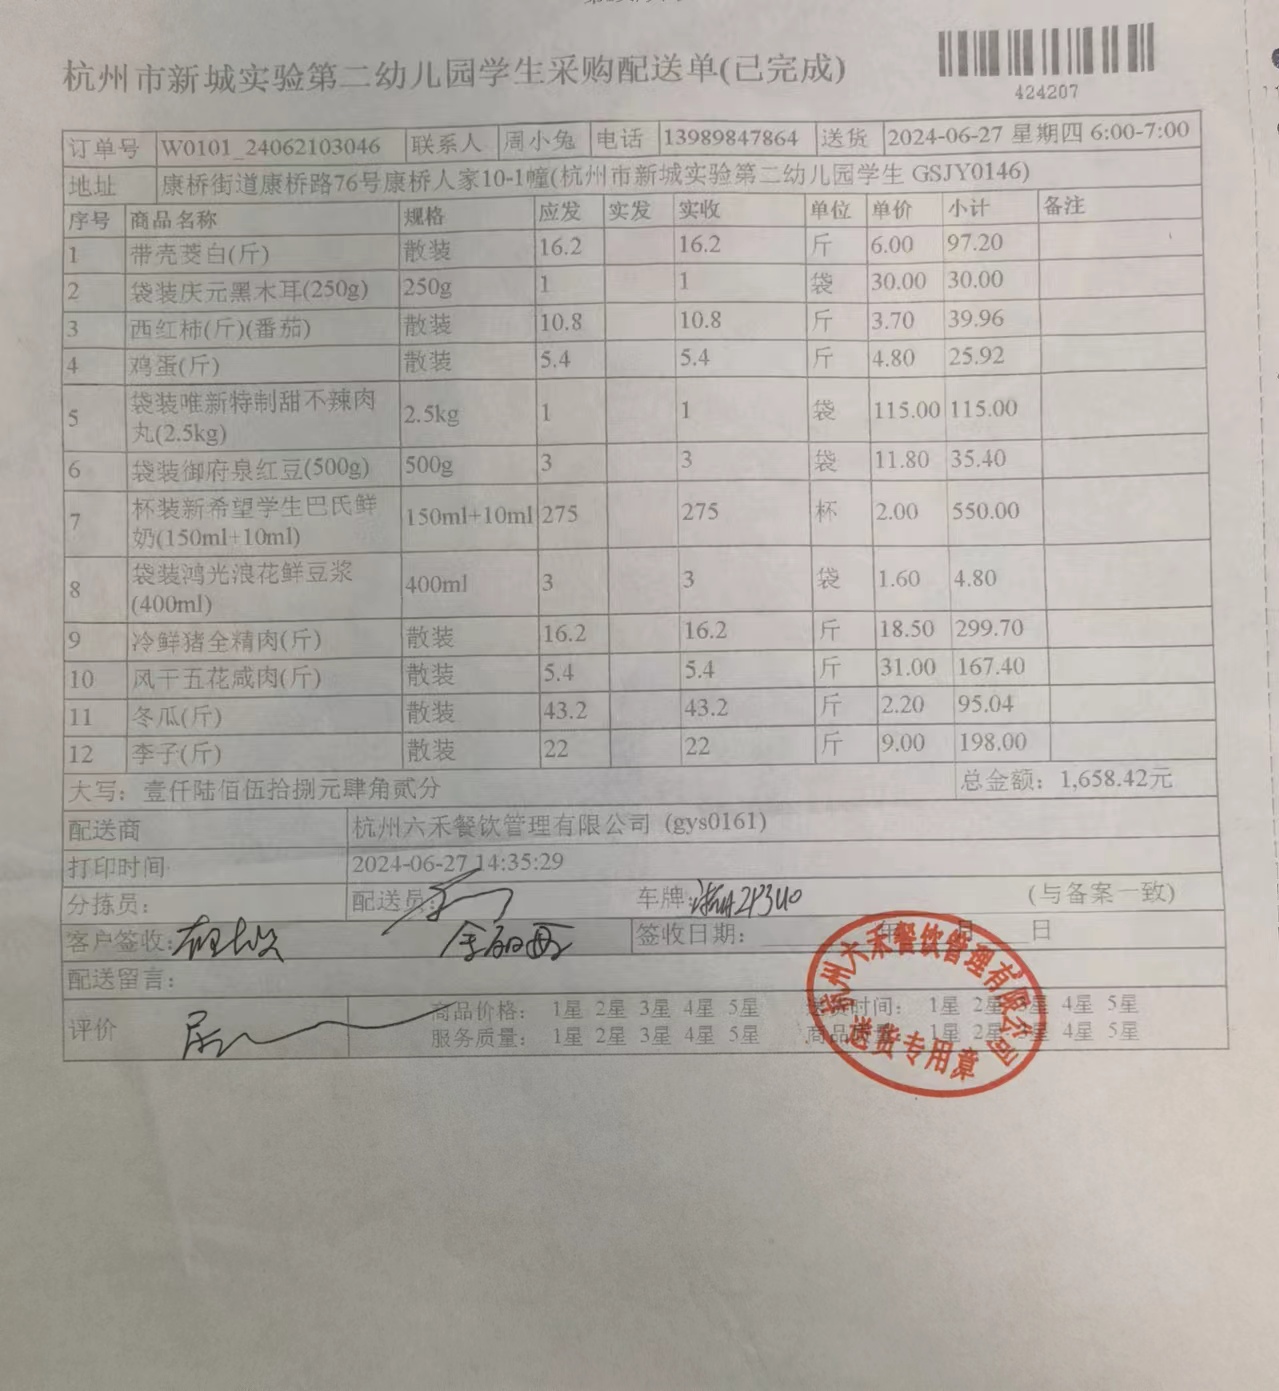 杭州市新城实验第二幼儿园学生采购配送单(已完成)
424207
订单号 W0101_24062103046 联系人 周小兔 电话 13989847864 送货 2024-06-27 星期四 6:00-7:00
地址 康桥街道康桥路76号康桥人家10-1幢(杭州市新城实验第二幼儿园学生 GSJY0146)
序号 商品名称 规格 应发 实发 实收 单位 单价 小计 备注
1 带壳茭白(斤) 散装 16.2 16.2 斤 6.00 97.20
2 袋装庆元黑木耳(250g) 250g 1 1 袋 30.00 30.00
3 西红柿(斤)(番茄) 散装 10.8 10.8 斤 3.70 39.96
4 鸡蛋(斤) 散装 5.4 5.4 斤 4.80 25.92
5 袋装唯新特制甜不辣肉 2.5kg 1 1 袋 115.00 115.00
丸(2.5kg)
6 袋装御府泉红豆(500g) 500g 3 3 袋 11.80 35.40
7 杯装新希望学生巴氏鲜 150ml+10ml 275 275 杯 2.00 550.00
奶(150ml+10ml)
8 袋装鸿光浪花鲜豆浆 400ml 3 3 袋 1.60 4.80
(400ml)
9 冷鲜猪全精肉(斤) 散装 16.2 16.2 斤 18.50 299.70
10 风干五花咸肉(斤) 散装 5.4 5.4 斤 31.00 167.40
11 冬瓜(斤) 散装 43.2 43.2 斤 2.20 95.04
12 李子(斤) 散装 22 22 斤 9.00 198.00
大写：壹仟陆佰伍拾捌元肆角贰分 总金额：1,658.42元
配送商 杭州六禾餐饮管理有限公司 (gys0161)
打印时间 2024-06-27 14:35:29
分拣员： 配送员： 车牌: (与备案一致)
客户签收： 签收日期： 年 月 日
配送留言：
评价 商品价格： 1星 2星 3星 4星 5星 送货时间： 1星 2星 3星 4星 5星
服务质量： 1星 2星 3星 4星 5星 商品质量： 1星 2星 3星 4星 5星
杭州六禾餐饮管理有限公司
送货专用章